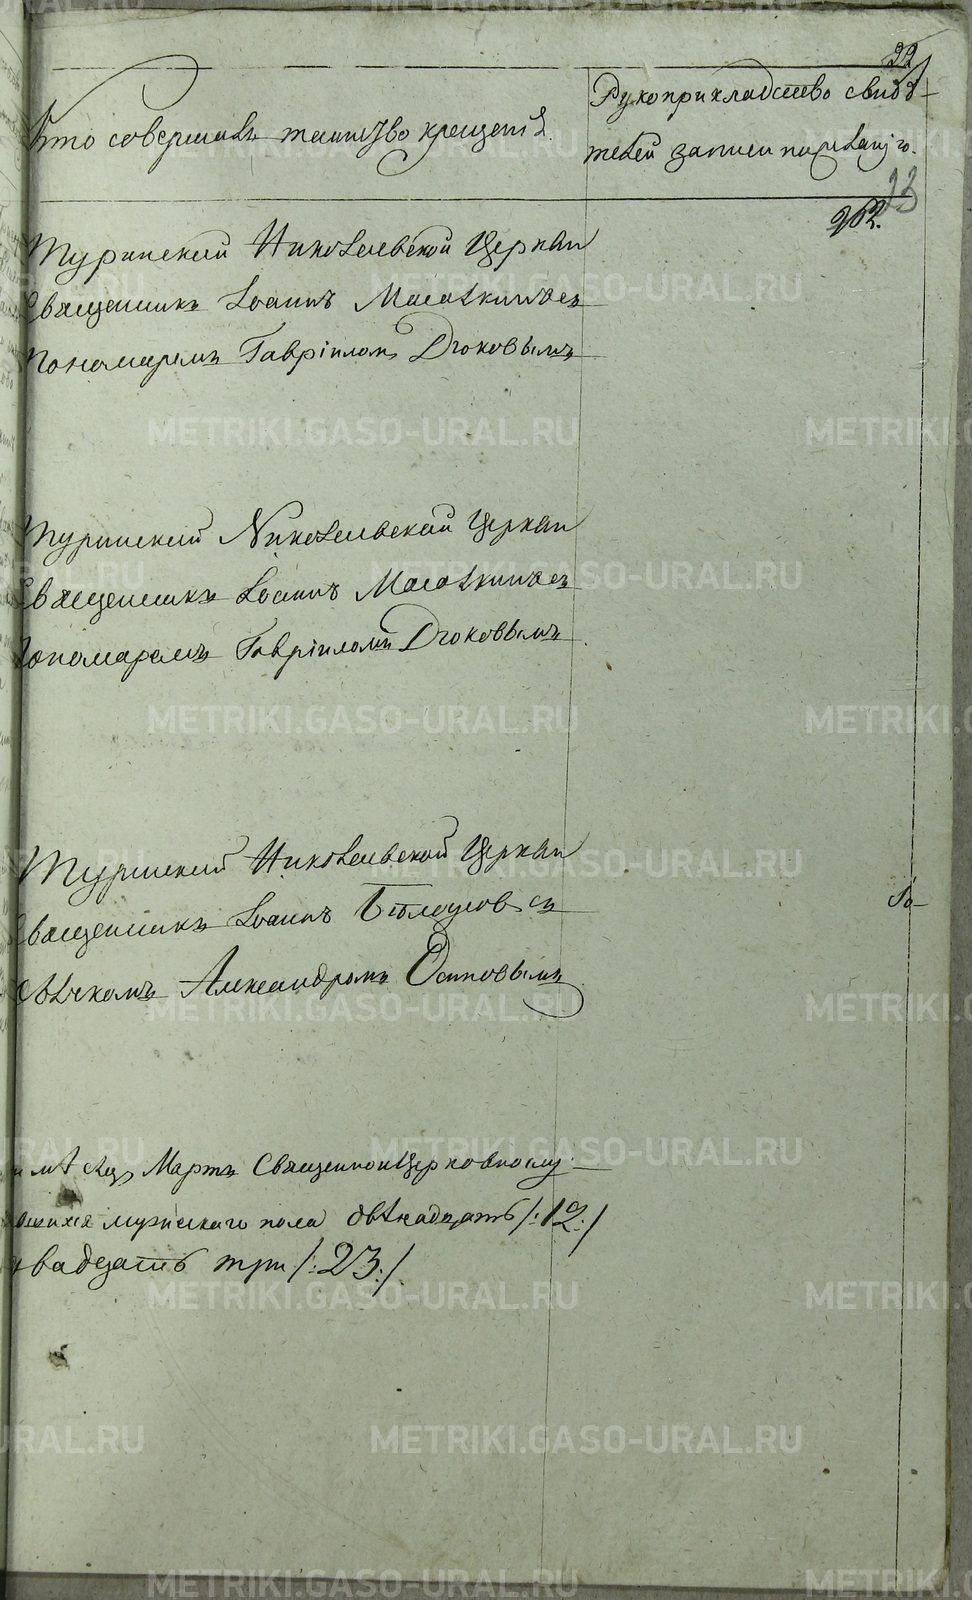 22
Кто совершалъ таинство крещенiя.
Рукоприкладство свидѣ-
телей записи по желанiю.
23
262.
Туринской Николаевской Церкви
Священникъ Iоаннъ съ
Пономаремъ Гаврiиломъ Дьяковымъ
Туринской Николаевской Церкви
Священникъ Iоаннъ съ
Пономаремъ Гаврiиломъ Дьяковымъ
Туринской Николаевской Церкви
Священникъ Iоаннъ Бѣлоусовъ съ
Александромъ Осиповымъ
Мартѣ
мужескаго пола двѣнадцать /:12:/
двадцать три /:23:/
METRIKI.GASO-URAL.RU